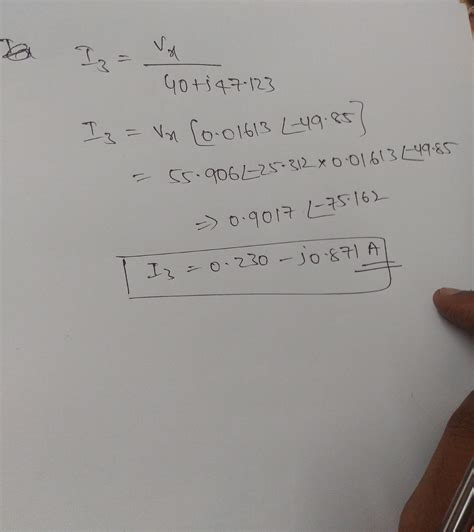 I₃ = Vx / 40+j47.123
I₃ = Vx [0.01613 ∠-49.85]
= 55.906∠-25.312 × 0.01613∠-49.85
⇒ 0.9017 ∠-75.162
I₃ = 0.230 - j0.871 A